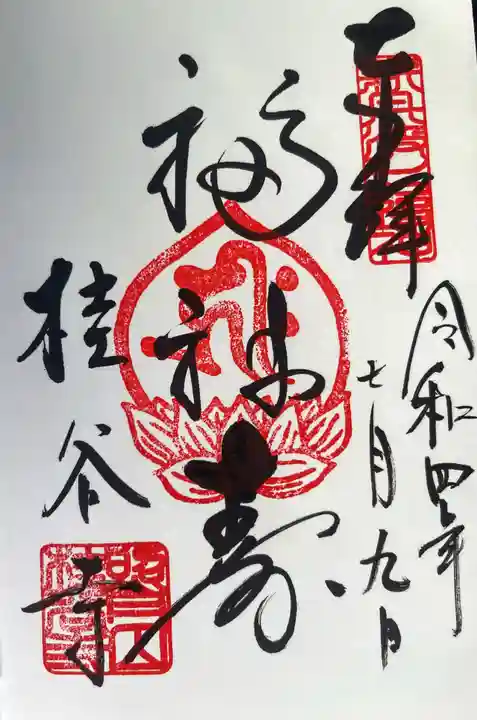 奉拝
令和四年
七月九日
福禄寿
桂谷寺